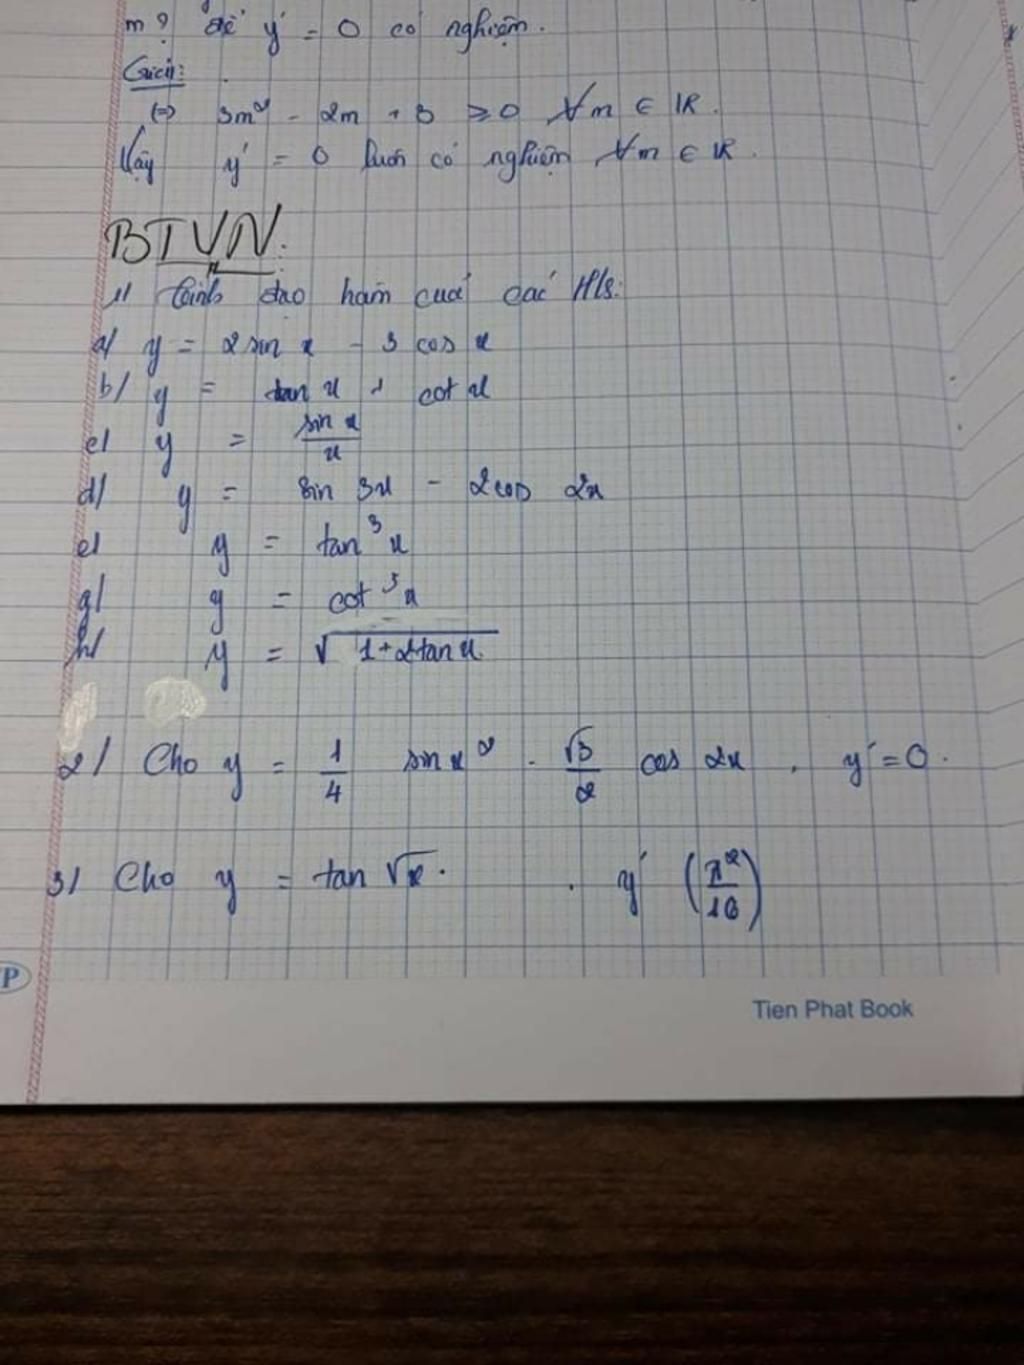 m? để y' = 0 có nghiệm.
Giải:
(=) 3m² - 2m + 3 ≥ 0 ∀m ∈ IR.
Vậy y' = 0 luôn có nghiệm ∀m ∈ IR.
BTVN:
1/ Tính đạo hàm cuả các Hls:
a/ y = 2 sin x - 3 cos x
b/ y = tan x + cot x
c/ y = sin x / x
d/ y = sin 3x - 2cos 2x
e/ y = tan³ x
g/ y = cot³ x
h/ y = √(1+2tan x)
2/ Cho y = 1/4 sin x² - √3/2 cos 2x . y' = 0.
3/ Cho y = tan √x . . y' (π²/16)
P
Tien Phat Book